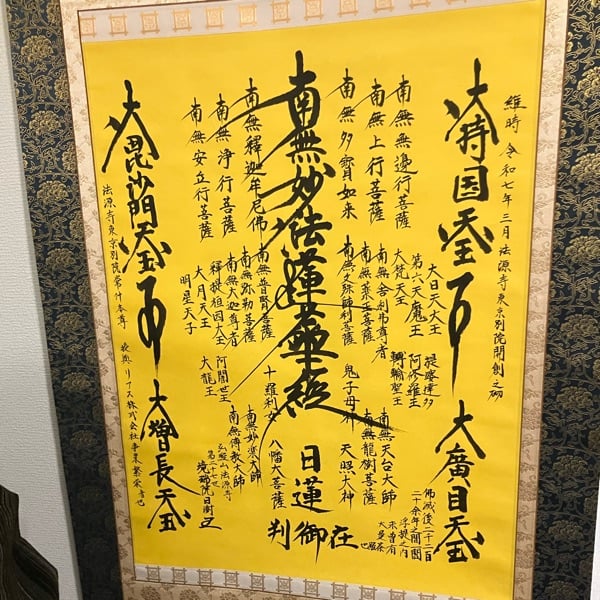 維時 令和七年三月 法源寺東京別院開創之砌
大持国天王
大廣目天王
南無無邊行菩薩
南無上行菩薩
南無多寳如来
南無妙法蓮華経
南無釋迦牟尼佛
南無浄行菩薩
南無安立行菩薩
大日天大王
第六天魔王
大梵天王
南無舎利弗尊者
南無薬王菩薩
南無文殊師利菩薩
南無普賢菩薩
南無弥勒菩薩
南無大迦尊者
釋提桓因大王
大月天王
明星天子
提婆達多
阿修羅王
轉輪聖王
鬼子母神
十羅刹女
阿闍世王
大龍王
南無天台大師
南無龍樹菩薩
天照大神
八幡大菩薩
南無妙楽大師
南無傳教大師
日蓮
在
御
判
佛滅後二千二百
二十余年之間
浮提之内
未曽有
大曼荼
也
大毘沙門天王
大増長天王
法源寺東京別院常什本尊
リアス株式会社事業繁栄